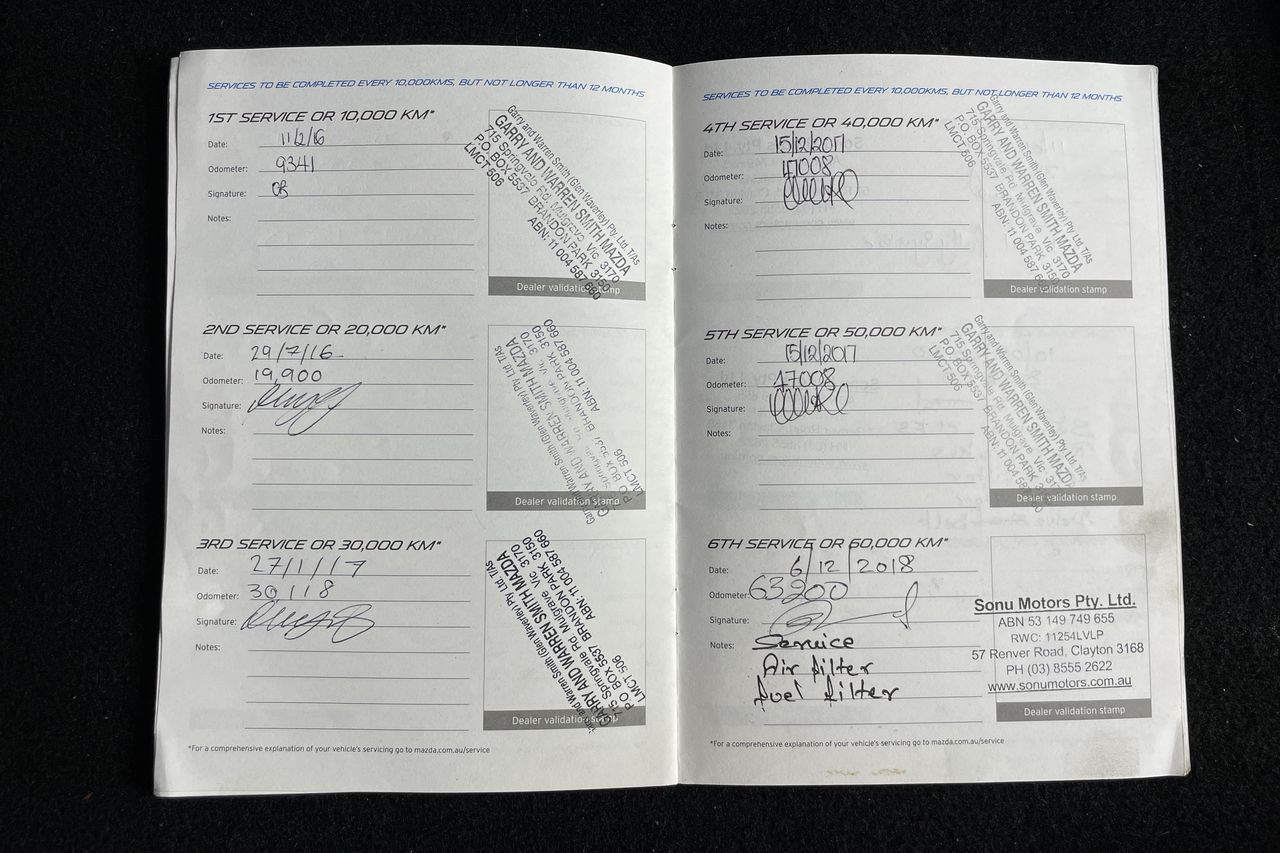 SERVICES TO BE COMPLETED EVERY 10,000KMS, BUT NOT LONGER THAN 12 MONTHS
1ST SERVICE OR 10,000 KM*
Date: 11/2/16
Odometer: 9341
Signature:
Notes:
Garry and Warren Smith (Glen Waverley) Pty. Ltd. T/As
GARRY AND WARREN SMITH MAZDA
715 Springvale Rd. Mulgrave Vic 3170
P.O. BOX 5537 BRANDON PARK 3150
LMCT 506 ABN: 11 004 587 660
Dealer validation stamp
2ND SERVICE OR 20,000 KM*
Date: 29/7/16
Odometer: 19,900
Signature:
Notes:
Garry and Warren Smith (Glen Waverley) Pty. Ltd. T/As
GARRY AND WARREN SMITH MAZDA
715 Springvale Rd Mulgrave Vic 3170
PO BOX 5537 BRANDON PARK 3150
LMCT 506 ABN: 11 004 587 660
Dealer validation stamp
3RD SERVICE OR 30,000 KM*
Date: 27/1/17
Odometer: 30118
Signature:
Notes:
Garry and Warren Smith (Glen Waverley) Pty. Ltd. T/As
GARRY AND WARREN SMITH MAZDA
715 Springvale Rd Mulgrave Vic 3170
PO BOX 5537 BRANDON PARK 3150
LMCT 506 ABN: 11 004 587 660
Dealer validation stamp
*For a comprehensive explanation of your vehicle's servicing go to mazda.com.au/service
SERVICES TO BE COMPLETED EVERY 10,000KMS, BUT NOT LONGER THAN 12 MONTHS
4TH SERVICE OR 40,000 KM*
Date: 15/12/2017
Odometer: 47008
Signature:
Notes:
Garry and Warren Smith (Glen Waverley) Pty. Ltd. T/As
GARRY AND WARREN SMITH MAZDA
715 Springvale Rd. Mulgrave Vic 3170
P.O. BOX 5537 BRANDON PARK 3150
LMCT 506 ABN: 11 004 587 660
Dealer validation stamp
5TH SERVICE OR 50,000 KM*
Date: 15/12/2017
Odometer: 47008
Signature:
Notes:
Garry and Warren Smith (Glen Waverley) Pty. Ltd. T/As
GARRY AND WARREN SMITH MAZDA
715 Springvale Rd. Mulgrave Vic 3170
P.O. BOX 5537 BRANDON PARK 3150
LMCT 506 ABN: 11 004 587 660
Dealer validation stamp
6TH SERVICE OR 60,000 KM*
Date: 6/12/2018
Odometer: 63200
Signature:
Notes: Service
Air filter
fuel filter
Sonu Motors Pty. Ltd.
ABN 53 149 749 655
RWC: 11254LVLP
57 Renver Road, Clayton 3168
PH (03) 8555 2622
www.sonumotors.com.au
Dealer validation stamp
*For a comprehensive explanation of your vehicle's servicing go to mazda.com.au/service